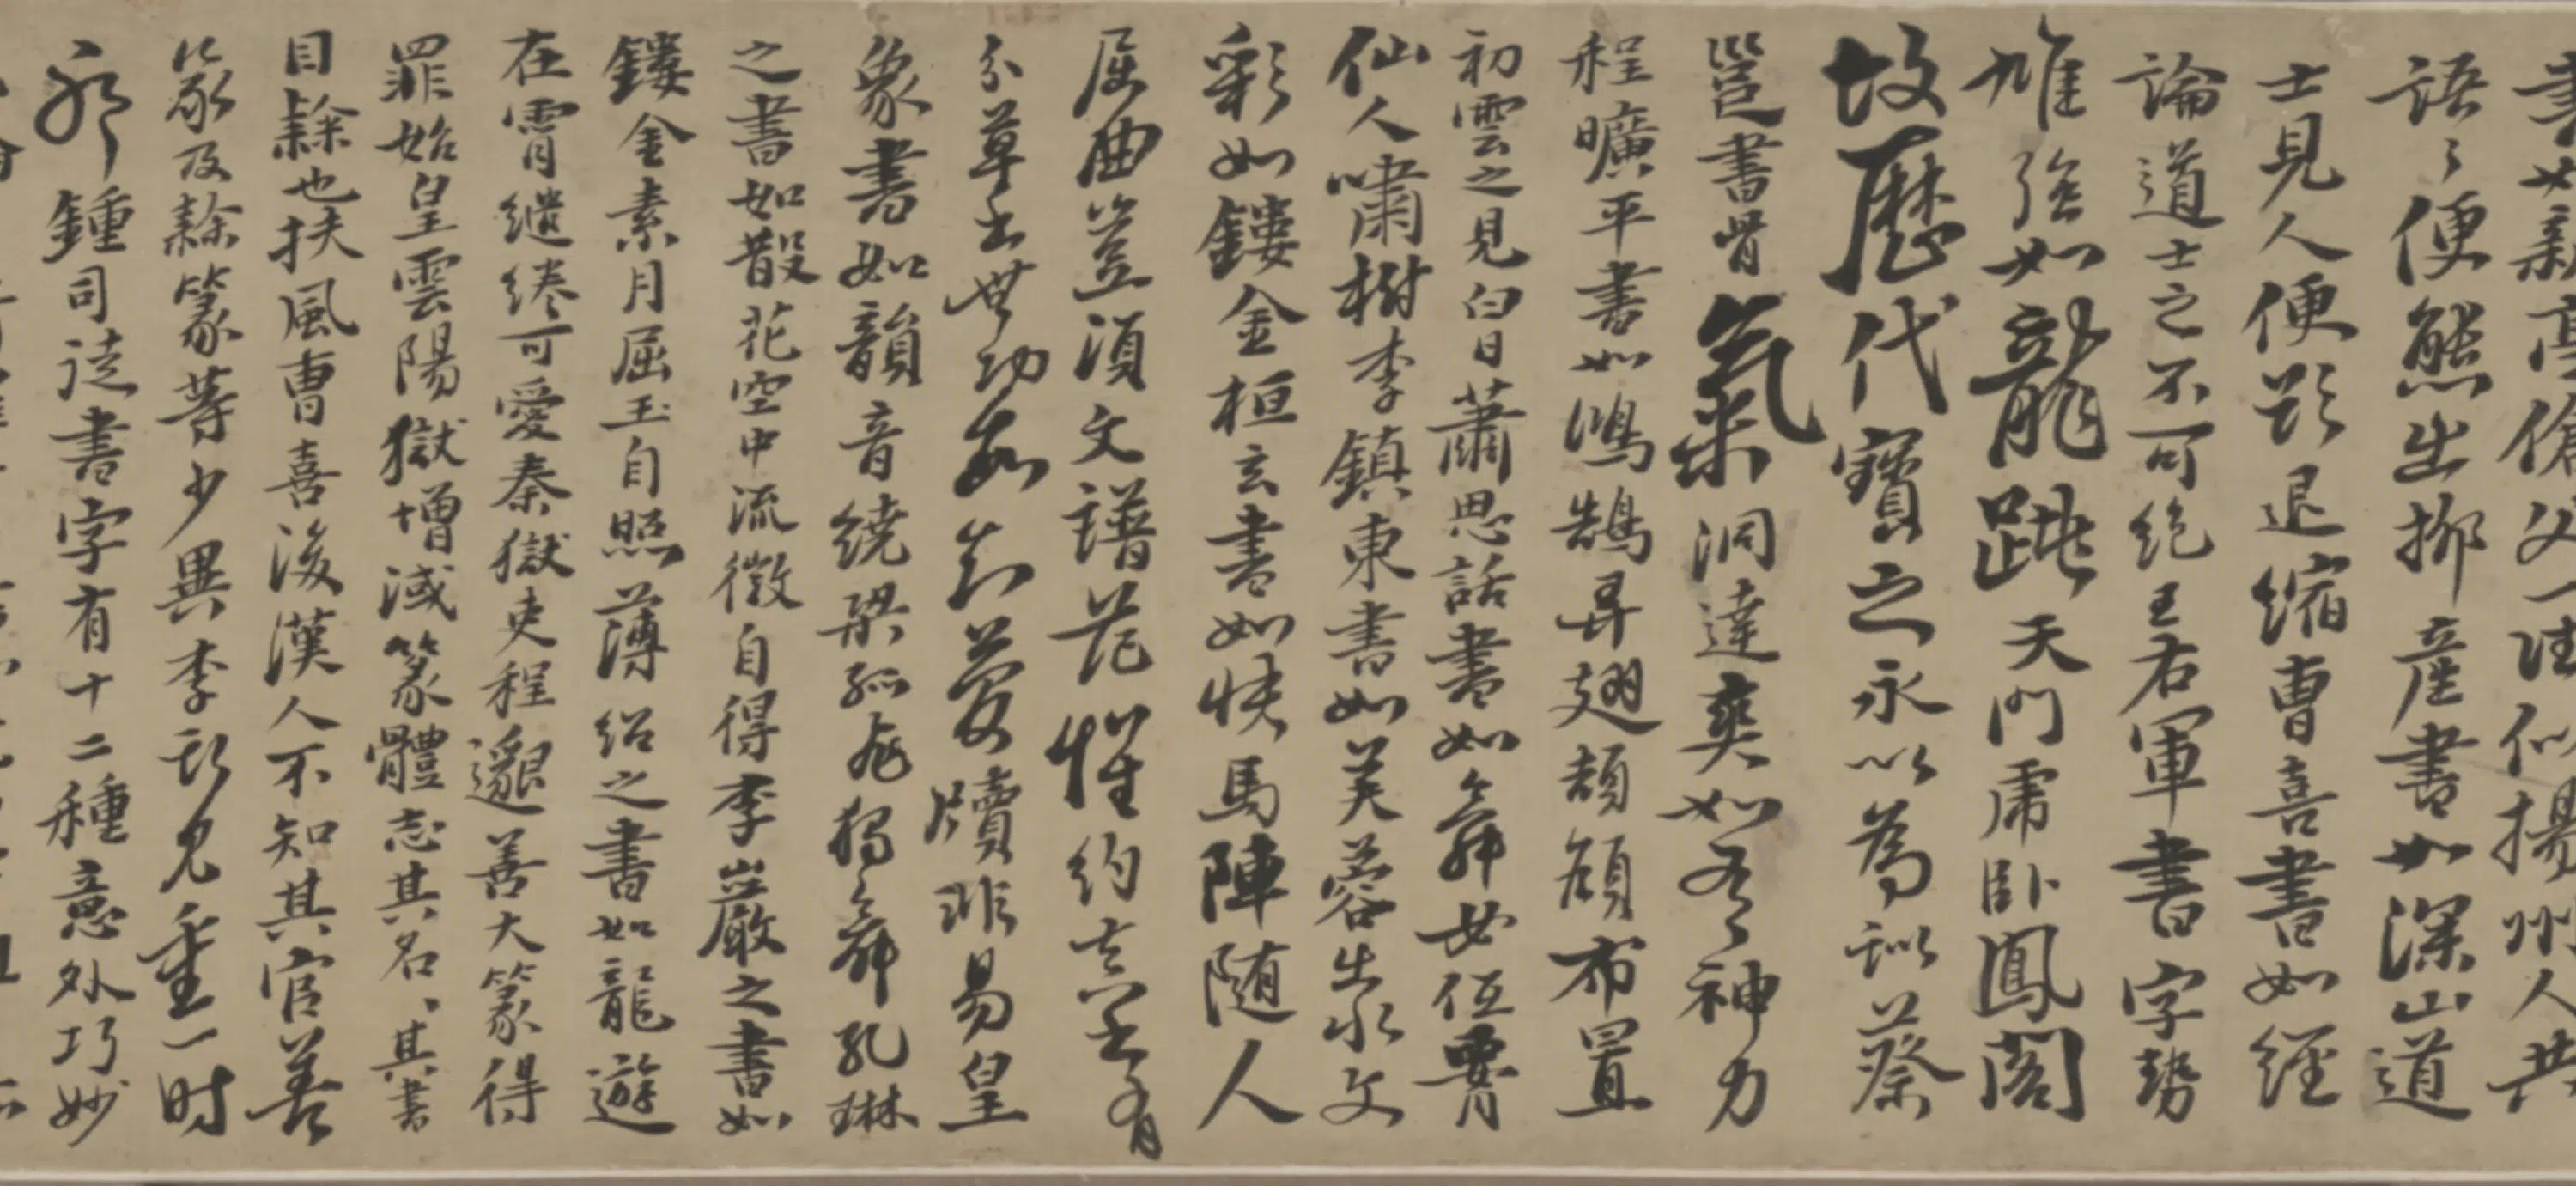 書如新亭傖父一往似揚州人共
語々便態出柳產書如深山道
士見人便欲退縮曹喜書如經
論道士之不可絕王右軍書字勢
雄強如龍跳天門虎臥鳳閣
故歷代寶之永以為訓蔡
邕書骨氣洞達爽如有神力
程曠平書如鴻鵠弄翅頡頏布置
初雲之見白日蕭思話書如舞女低霄
仙人嘯樹李鎮東書如芙蓉出水文
彩如鏤金桓玄書如快馬陣隨人
屈曲豈須文譜范懷約真書有
分草書無功故知簡牘非易皇
象書如韻音繞梁孤飛獨舞孔琳
之書如散花空中流徽自得李巖之書如
鏤金素月屈玉自照薄紹之書如龍遊
在霄繾綣可愛秦獄吏程邈善大篆得
罪始皇雲陽獄增減篆體志其名、其書
曰隸也扶風曹喜後漢人不知其官善
篆及隸篆等少異李斯見重一時
鍾司徒書字有十二種意外巧妙